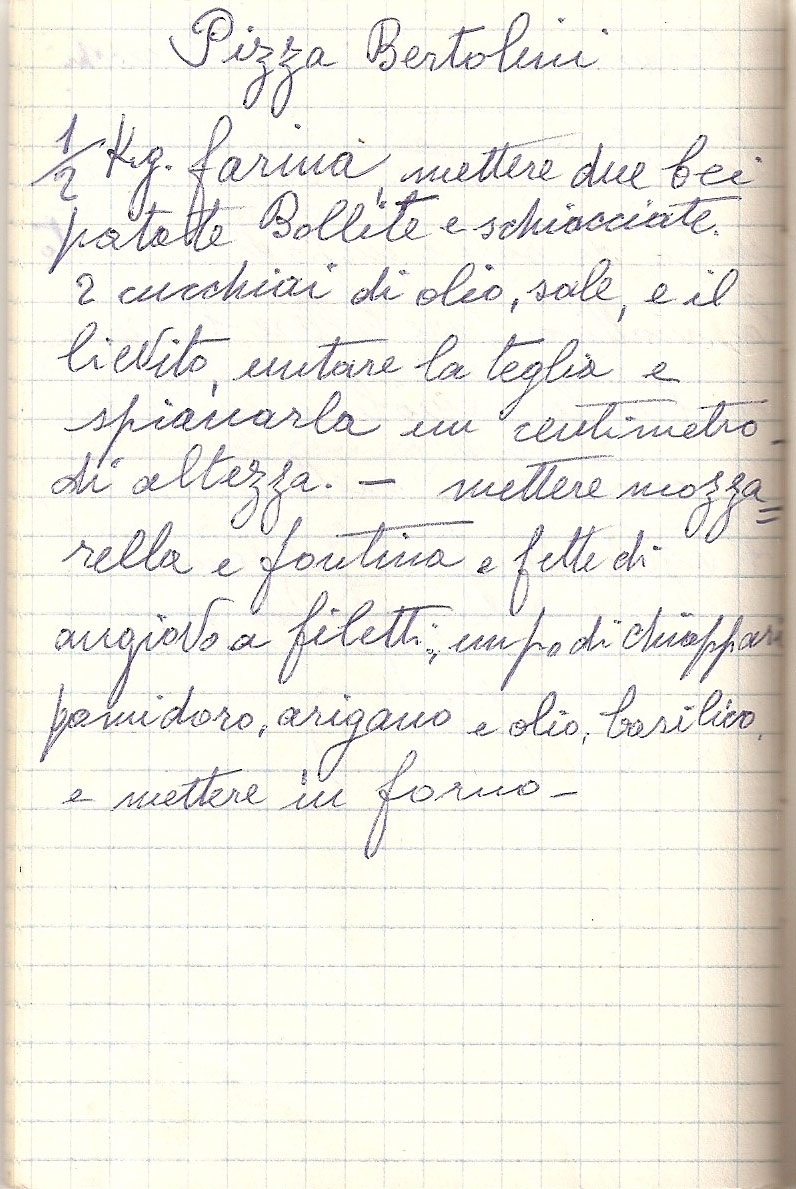 Pizza Bertolini
1/2 Kg. farina, mettere due bei
patate Bollite e schiacciate.
2 cucchiai di olio, sale, e il
lievito, untare la teglia e
spianarla un centimetro
di altezza. — mettere mozza=
rella e fontina e fette di
angiova a filetti, un po di chiappari
pomidoro, arigano e olio, basilico,
e mettere in forno —